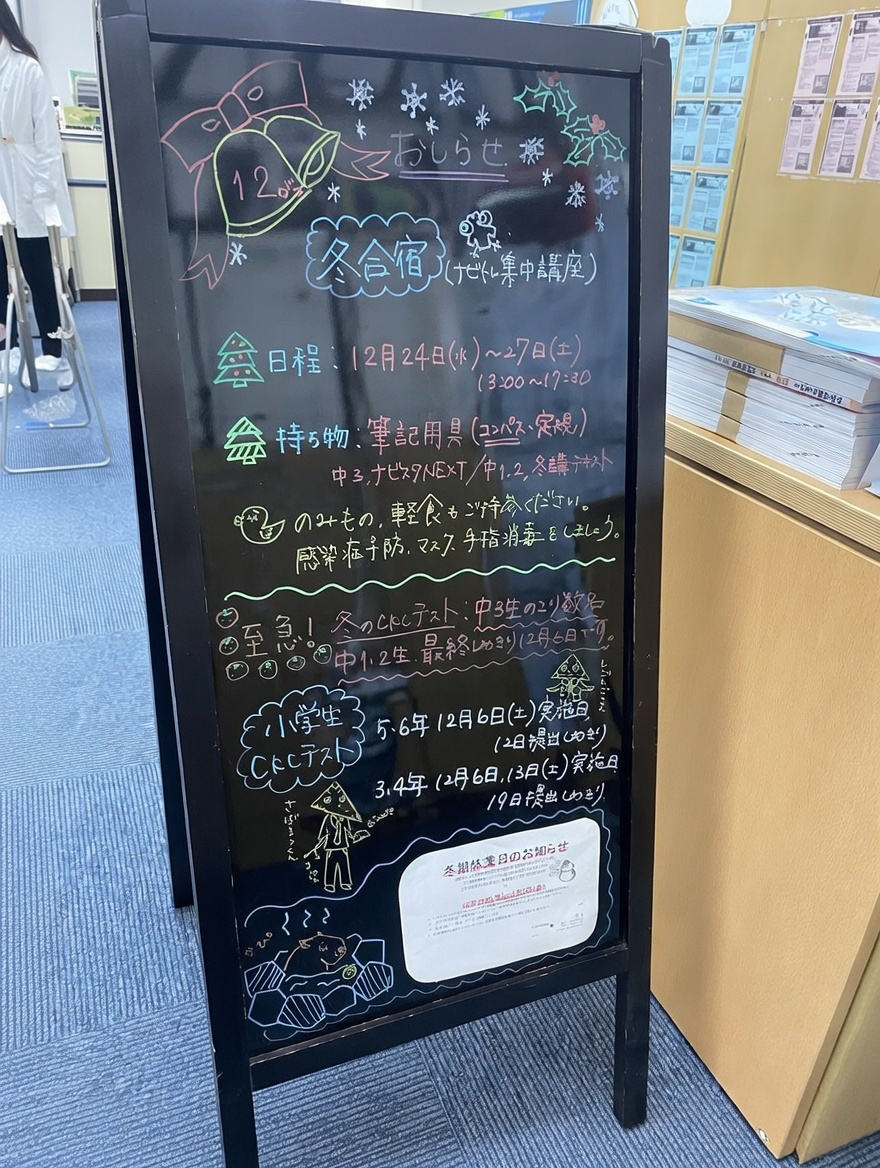 12月の
おしらせ
冬合宿
(ナビトレ集中講座)
日程: 12月24日(水)~27日(土)
13:00~17:30
持ち物: 筆記用具(コンパス・定規)
中3,ナビスタNEXT/中1,2,冬講テキスト
のみもの,軽食もご持参ください。
感染症予防,マスク,手指消毒をしましょう。
至急! 冬のCKCテスト:中3生のこり数名
中1・2生 最終しめきり12月6日です。
小学生
CKCテスト
5・6年 12月6日(土)実施日
12日提出しめきり
3,4年 12月6日,13日(土)実施日
19日提出しめきり
冬期休業日のお知らせ